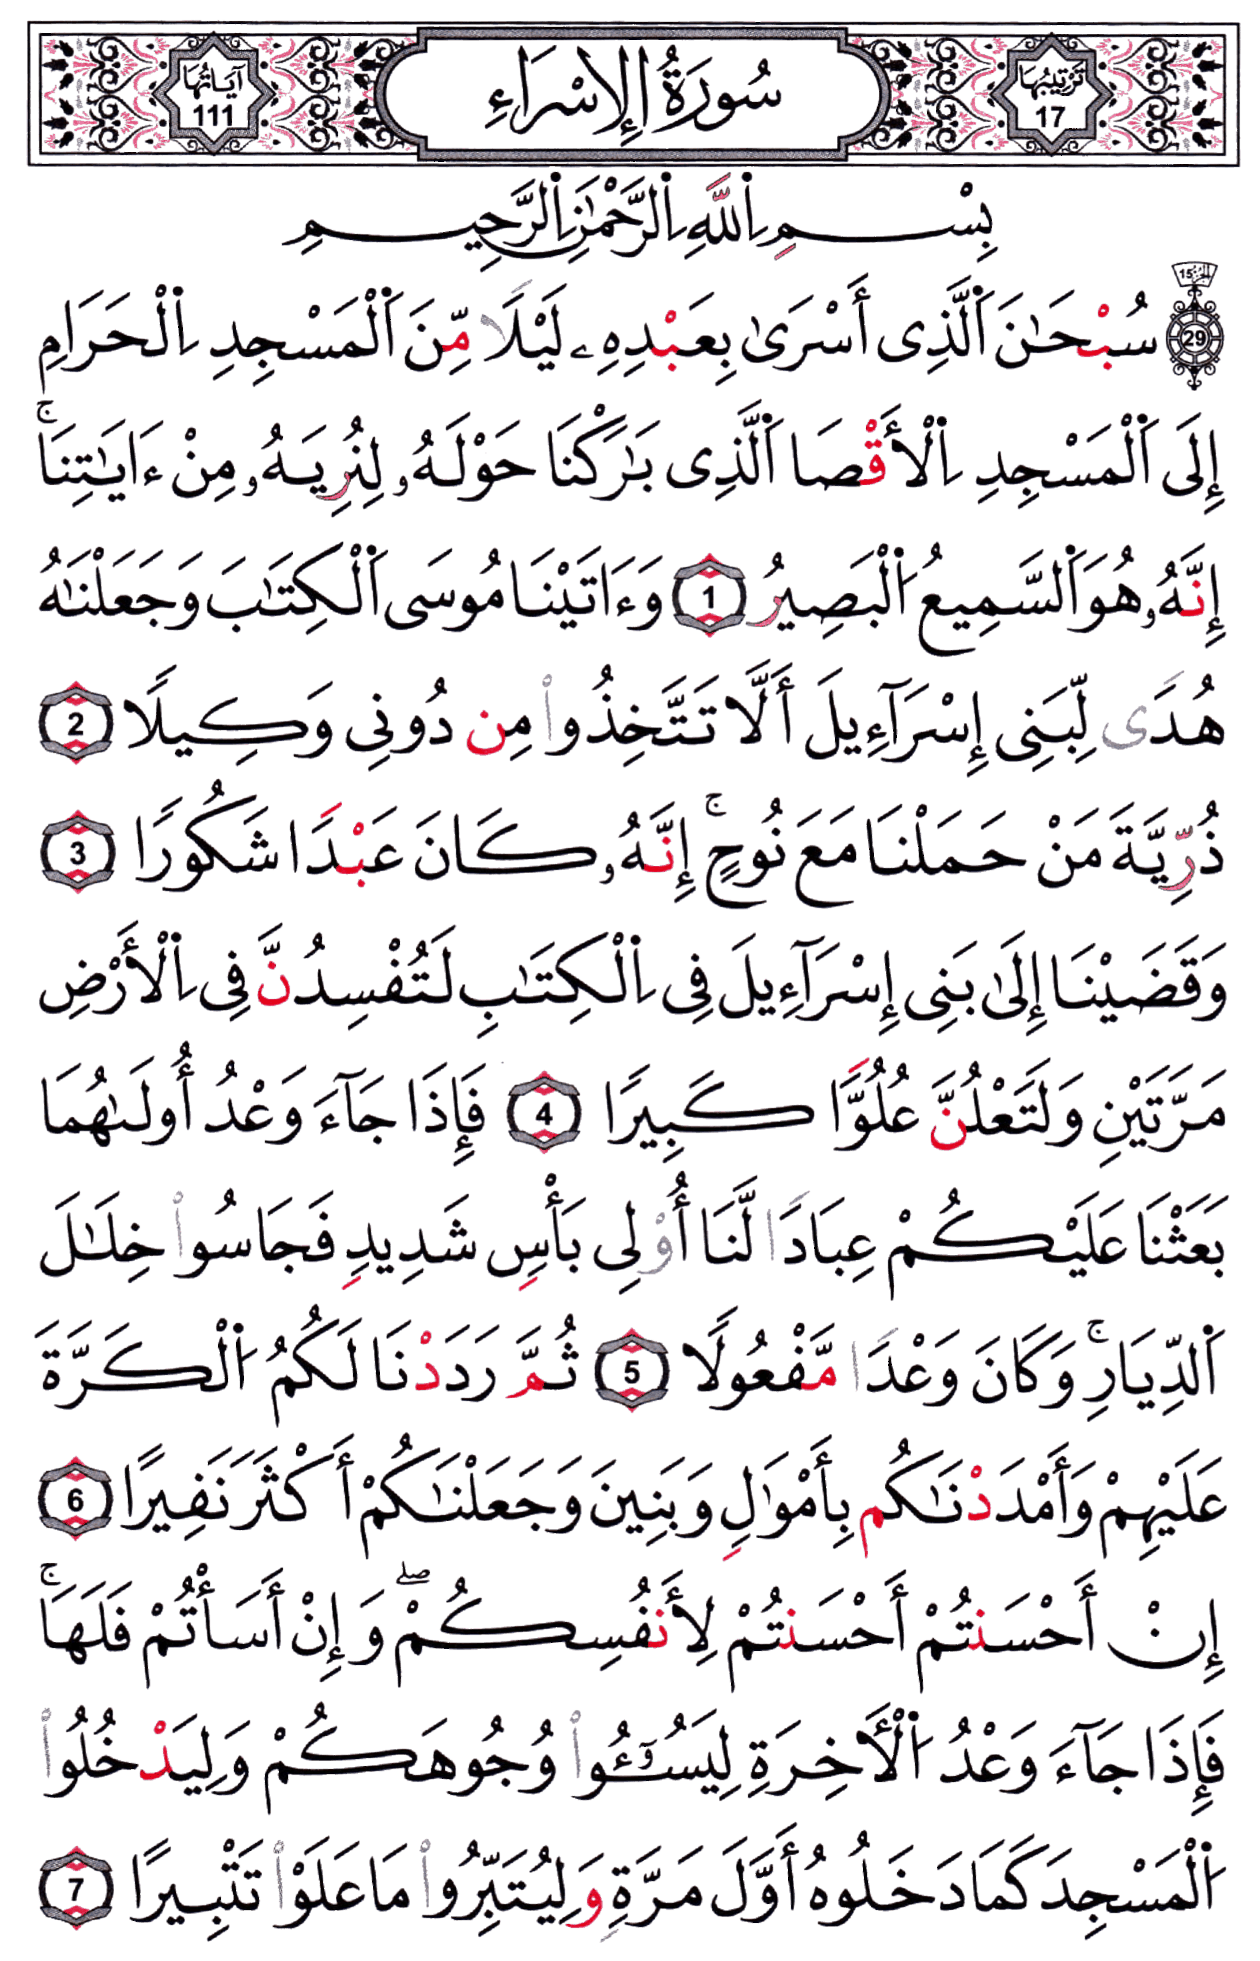 تَرْتِيبُهَا 17 سُورَةُ الإِسْرَاءِ آيَاتُهَا 111
بِسْمِ اِ۬للَّهِ اِ۬لرَّحْمَٰنِ اِ۬لرَّحِيمِ
الجزء 15
29 سُبْحَٰنَ اَ۬لَّذِى أَسْرَىٰ بِعَبْدِهِۦ لَيْلًا مِّنَ اَ۬لْمَسْجِدِ اِ۬لْحَرَامِ
إِلَى اَ۬لْمَسْجِدِ اِ۬لْأَقْصَا اَ۬لَّذِى بَٰرَكْنَا حَوْلَهُۥ لِنُرِيَهُۥ مِنْ ءَايَٰتِنَاۚ
إِنَّهُۥ هُوَ اَ۬لسَّمِيعُ اُ۬لْبَصِيرُ 1 وَءَاتَيْنَا مُوسَى اَ۬لْكِتَٰبَ وَجَعَلْنَٰهُ
هُدًى لِّبَنِى إِسْرَآءِيلَ أَلَّا تَتَّخِذُوا۟ مِن دُونِى وَكِيلًا 2
ذُرِّيَّةَ مَنْ حَمَلْنَا مَعَ نُوحٍۚ إِنَّهُۥ كَانَ عَبْدًا شَكُورًا 3
وَقَضَيْنَا إِلَىٰ بَنِى إِسْرَآءِيلَ فِى اِ۬لْكِتَٰبِ لَتُفْسِدُنَّ فِى اِ۬لْأَرْضِ
مَرَّتَيْنِ وَلَتَعْلُنَّ عُلُوًّا كَبِيرًا 4 فَإِذَا جَآءَ وَعْدُ أُولَىٰهُمَا
بَعَثْنَا عَلَيْكُمْ عِبَادًا لَّنَا أُو۟لِى بَأْسٍ شَدِيدٍ فَجَاسُوا۟ خِلَٰلَ
اَ۬لدِّيَارِۚ وَكَانَ وَعْدًا مَّفْعُولًا 5 ثُمَّ رَدَدْنَا لَكُمُ اُ۬لْكَرَّةَ
عَلَيْهِمْ وَأَمْدَدْنَٰكُم بِأَمْوَٰلٍ وَبَنِينَ وَجَعَلْنَٰكُمْ أَكْثَرَ نَفِيرًا 6
إِنْ أَحْسَنتُمْ أَحْسَنتُمْ لِأَنفُسِكُمْۖ وَإِنْ أَسَأْتُمْ فَلَهَاۚ
فَإِذَا جَآءَ وَعْدُ اُ۬لْأَخِرَةِ لِيَسُـُٔوا۟ وُجُوهَكُمْ وَلِيَدْخُلُوا۟
اُ۬لْمَسْجِدَ كَمَا دَخَلُوهُ أَوَّلَ مَرَّةٍ وَلِيُتَبِّرُوا۟ مَا عَلَوْا۟ تَتْبِيرًا 7